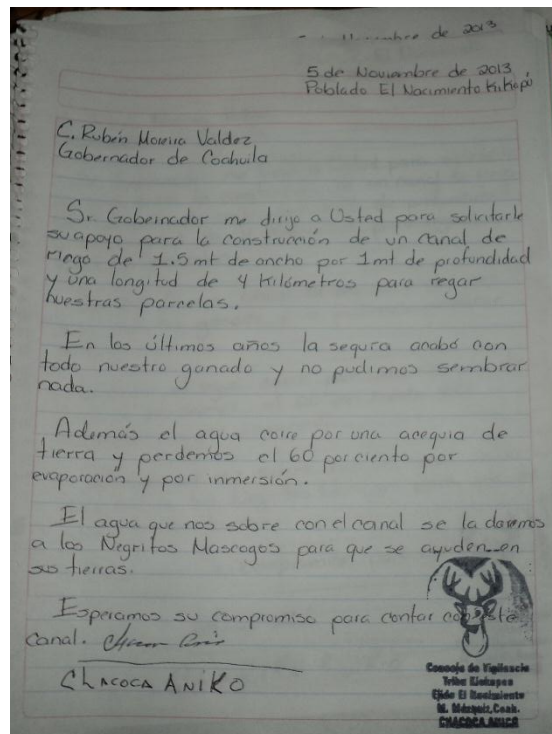 de 2013
5 de Noviembre de 2013
Poblado El Nacimiento Kikapú
C. Rubén Moreira Valdez
Gobernador de Coahuila
Sr. Gobernador me dirijo a Usted para solicitarle
su apoyo para la construcción de un canal de
riego de 1.5 mt de ancho por 1 mt de profundidad
y una longitud de 4 kilómetros para regar
nuestras parcelas.
En los últimos años la sequía acabó con
todo nuestro ganado y no pudimos sembrar
nada.
Además el agua corre por una acequia de
tierra y perdemos el 60 por ciento por
evaporación y por inmersión.
El agua que nos sobre con el canal se la daremos
a los Negritos Mascogos para que se ayuden en
sus tierras.
Esperamos su compromiso para contar con este
canal.
CHACOCA ANIKO
Consejo de Vigilancia
Tribu Kikapoo
Ejido El Nacimiento
M. Múzquiz, Coah.
CHACOCA ANICO